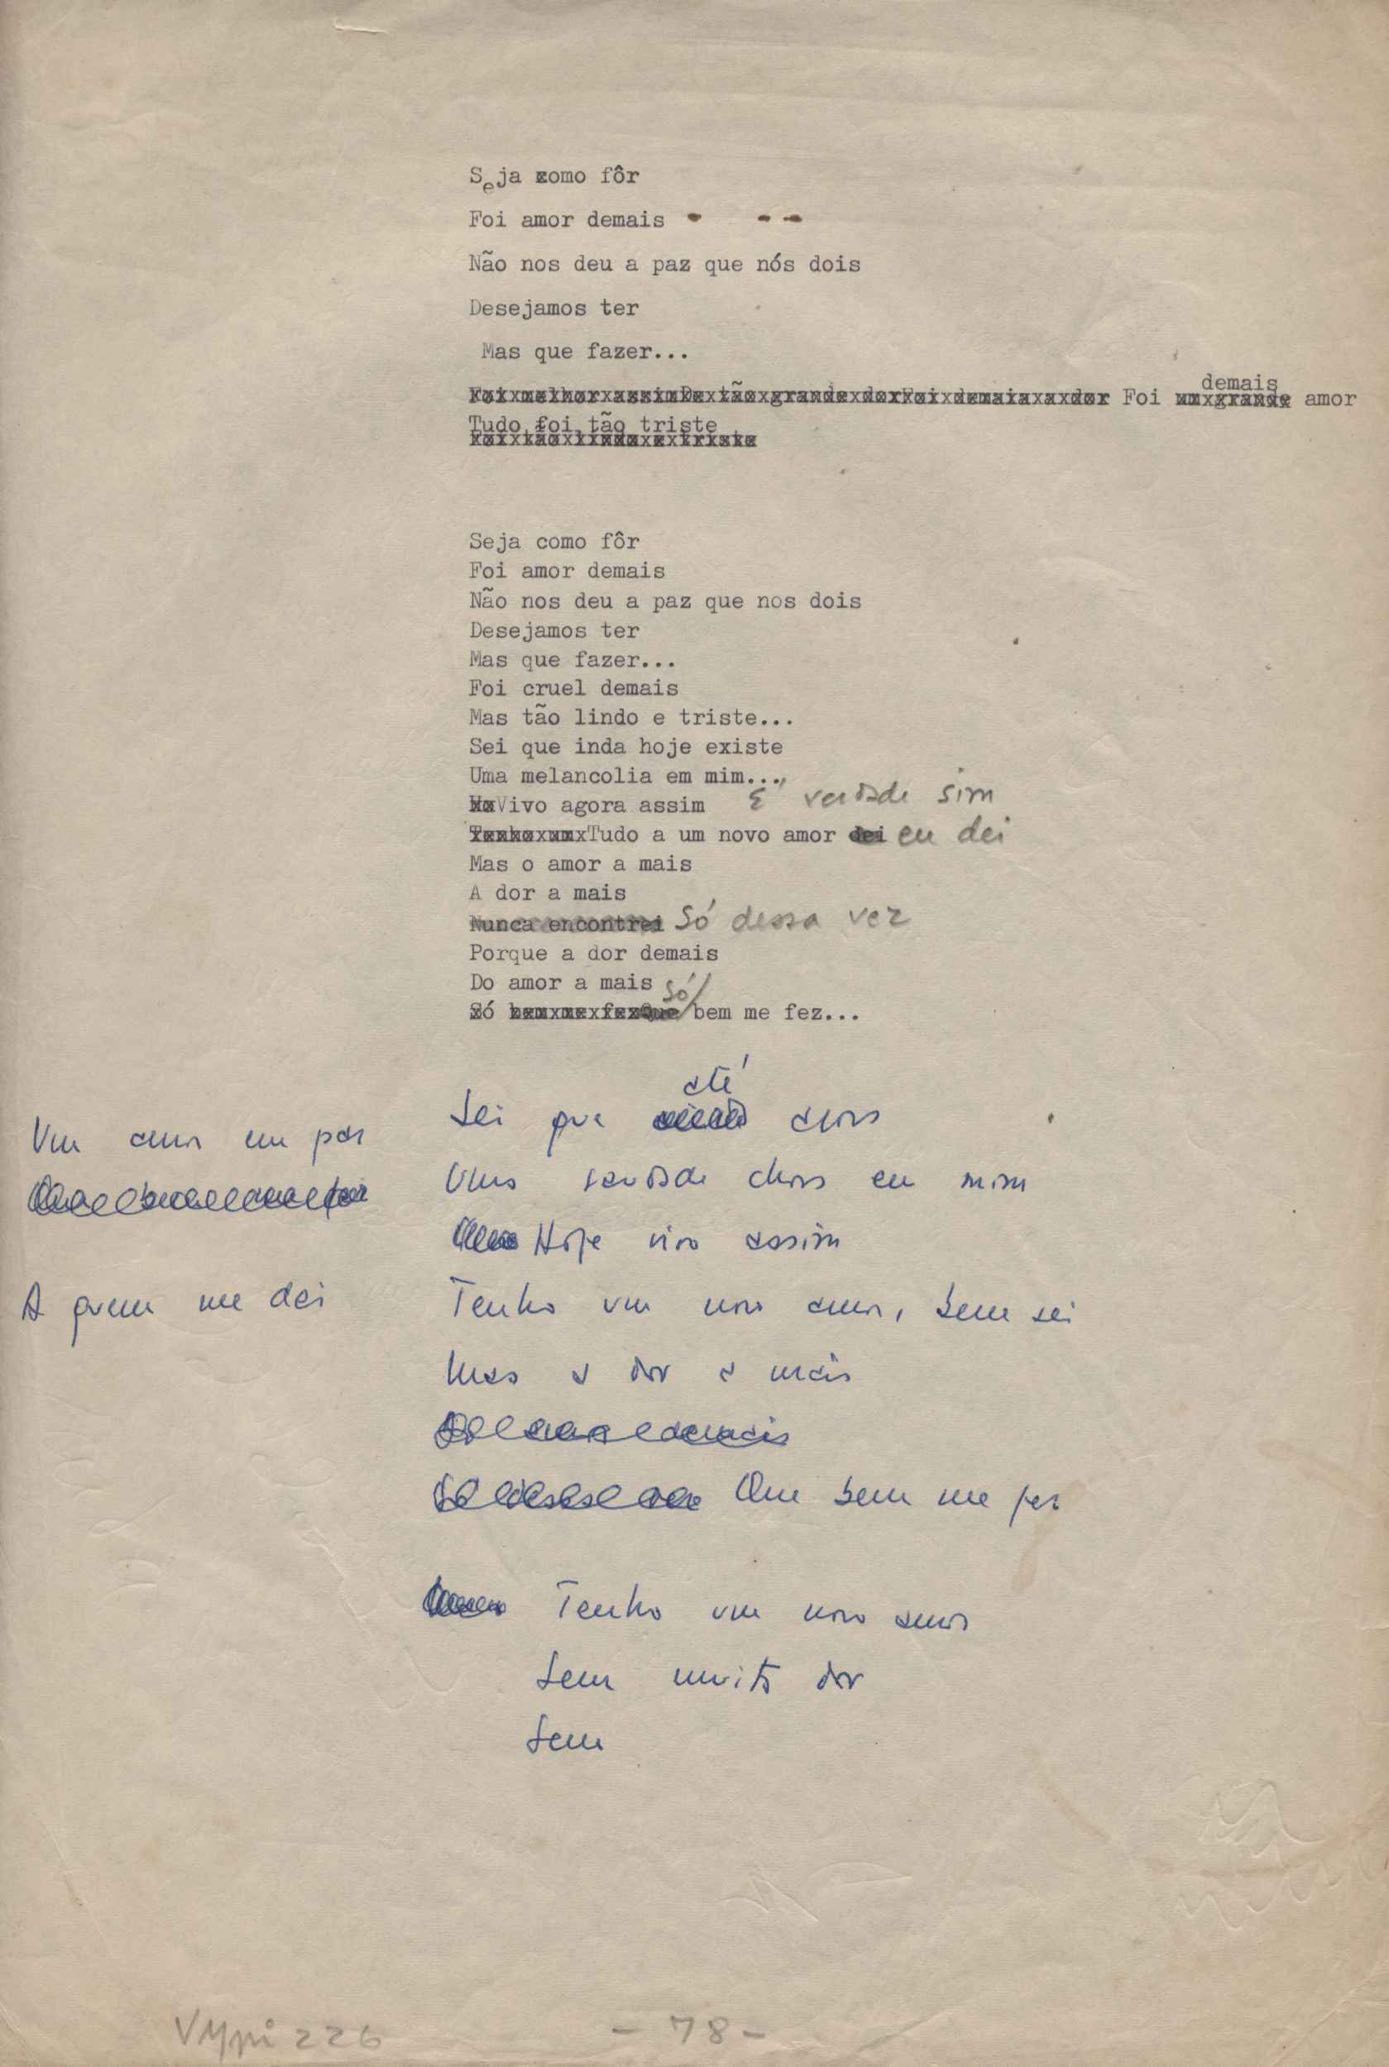 Seja como fôr
Foi amor demais
Não nos deu a paz que nós dois
Desejamos ter
Mas que fazer...
demais
Foi amor
Tudo foi tão triste
Seja como fôr
Foi amor demais
Não nos deu a paz que nos dois
Desejamos ter
Mas que fazer...
Foi cruel demais
Mas tão lindo e triste...
Sei que inda hoje existe
Uma melancolia em mim...,
Vivo agora assim É verdade sim
Tudo a um novo amor dei eu dei
Mas o amor a mais
A dor a mais
Nunca encontrei Só dessa vez
Porque a dor demais
Do amor a mais
Só
Só bem me fez...
até
Sei que
Um amor em paz
Uma saudade chora em mim
Hoje vivo assim
A quem me dei
Tenho um novo amor, bem sei
Mas a dor a mais
Que bem me fez
Tenho um novo amor
Sem muita dor
Sem
VMpi 226
- 78 -